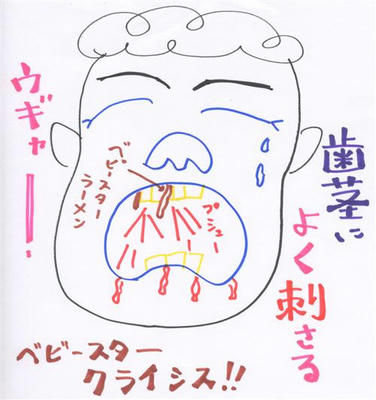 歯茎に
よく刺さる
ウギャーー・
ベビースター
ラーメン
プシュー
ベビースター
クライシス!!